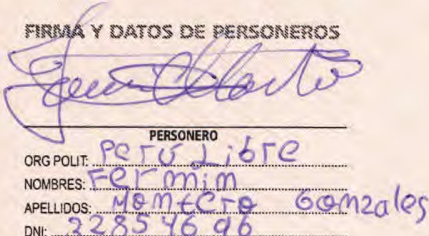 FIRMA Y DATOS DE PERSONEROS
PERSONERO
ORG POLIT: Perú Libre
NOMBRES: Fermin
APELLIDOS: Montero Gonzales
DNI: 32854696